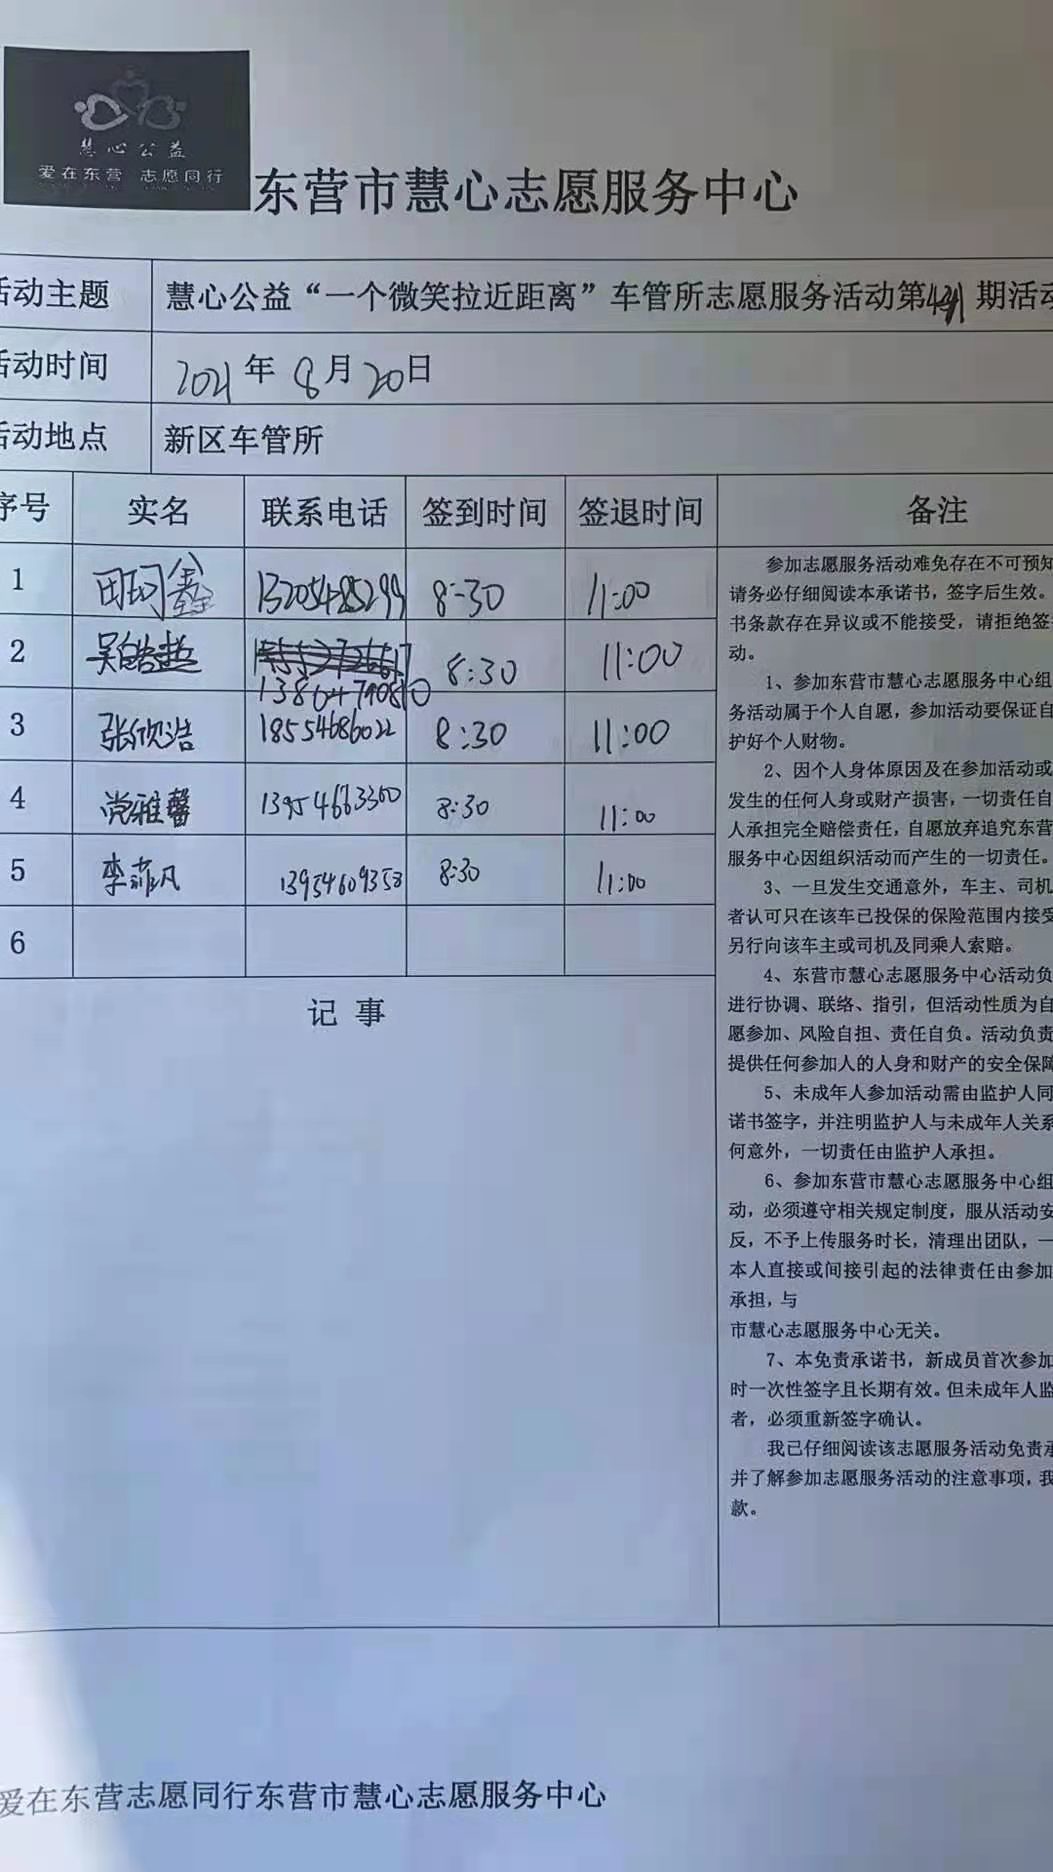 慧心公益
爱在东营 志愿同行
东营市慧心志愿服务中心
活动主题 慧心公益“一个微笑拉近距离”车管所志愿服务活动第 期活动
活动时间 2021年 8月20日
活动地点 新区车管所
序号 实名 联系电话 签到时间 签退时间 备注
1 田珂鑫 13205485299 8-30 11:00
2 吴皓越 8:30 11:00
13864790810
3 张欣浩 18554686022 8:30 11:00
4 党雅馨 13954663300 8:30 11:00
5 李菲凡 13954609353 8:30 11:00
6
记 事
参加志愿服务活动难免存在不可预知
请务必仔细阅读本承诺书，签字后生效。
书条款存在异议或不能接受，请拒绝签
动。
1、参加东营市慧心志愿服务中心组
务活动属于个人自愿，参加活动要保证自
护好个人财物。
2、因个人身体原因及在参加活动或
发生的任何人身或财产损害，一切责任自
人承担完全赔偿责任，自愿放弃追究东营
服务中心因组织活动而产生的一切责任。
3、一旦发生交通意外，车主、司机
者认可只在该车已投保的保险范围内接受
另行向该车主或司机及同乘人索赔。
4、东营市慧心志愿服务中心活动负
进行协调、联络、指引，但活动性质为自
愿参加、风险自担、责任自负。活动负责
提供任何参加人的人身和财产的安全保障
5、未成年人参加活动需由监护人同
诺书签字，并注明监护人与未成年人关系
何意外，一切责任由监护人承担。
6、参加东营市慧心志愿服务中心组
动，必须遵守相关规定制度，服从活动安
反，不予上传服务时长，清理出团队，一
本人直接或间接引起的法律责任由参加
承担，与
市慧心志愿服务中心无关。
7、本免责承诺书，新成员首次参加
时一次性签字且长期有效。但未成年人监
者，必须重新签字确认。
我已仔细阅读该志愿服务活动免责承
并了解参加志愿服务活动的注意事项，我
款。
爱在东营志愿同行东营市慧心志愿服务中心